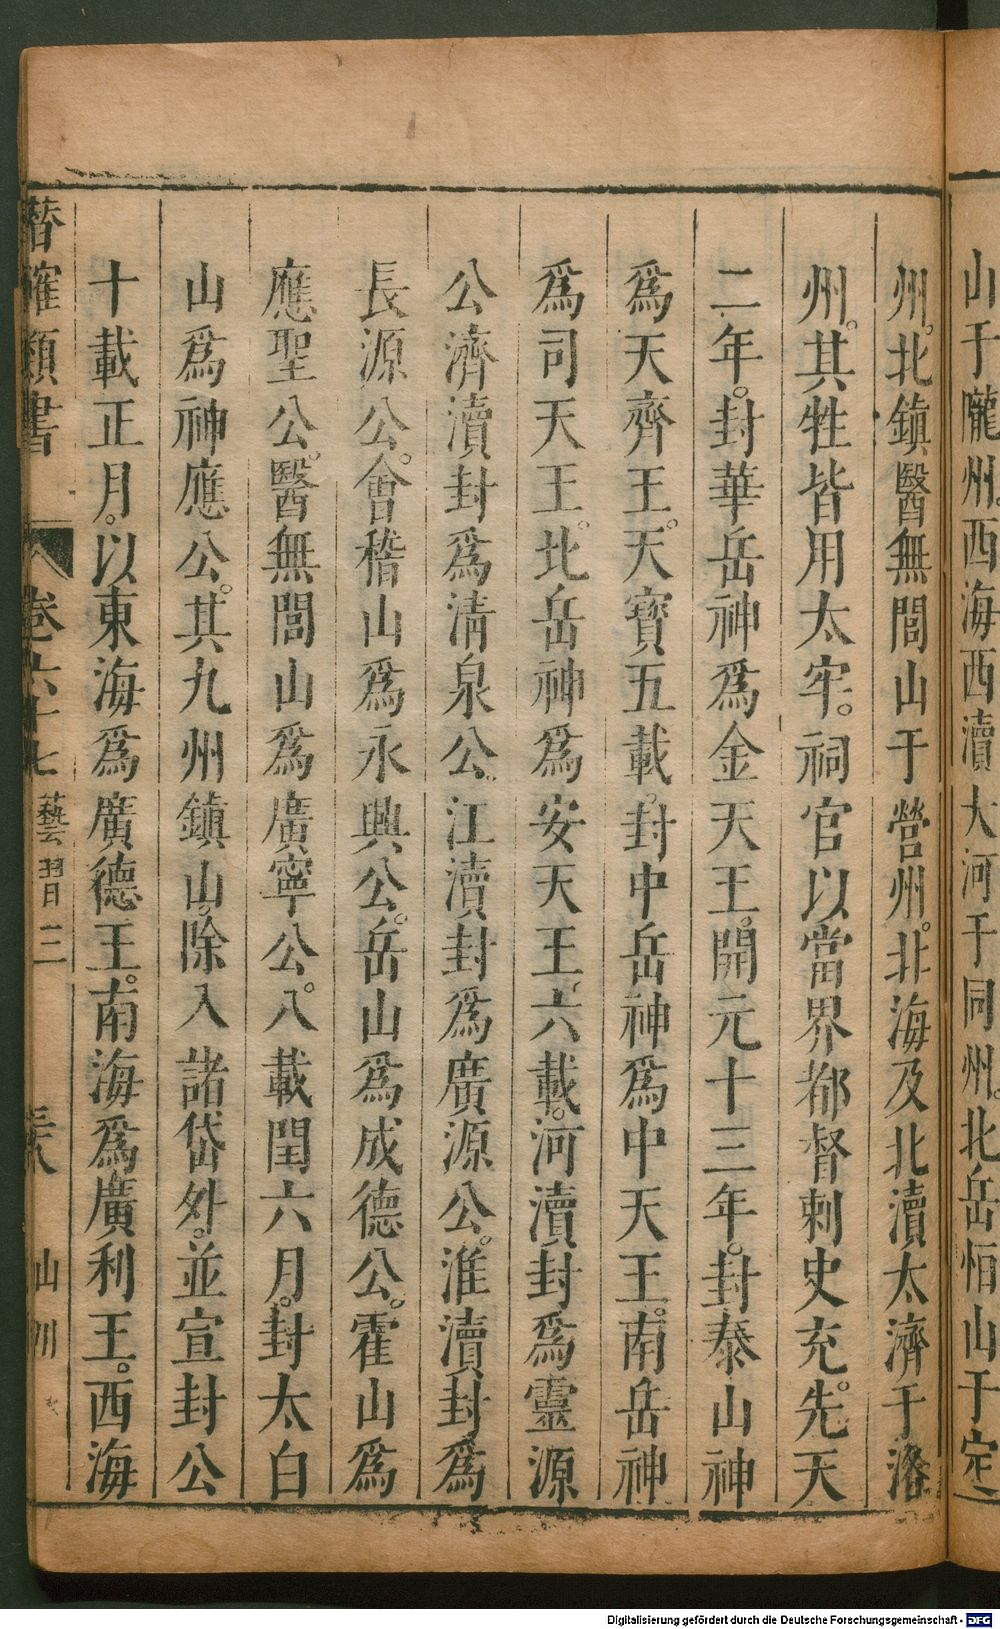 山于隴州西海西瀆大河于同州。北岳恒山于定
州。北鎮醫無閭山于營州。北海及北瀆太濟于洛
州。其牲皆用太牢。祠官以當界都督刺史充。先天
二年。封華岳神爲金天王。開元十三年。封泰山神
爲天齊王。天寶五載。封中岳神爲中天王。南岳神
爲司天王。北岳神爲安天王。六載。河瀆封爲靈源
公濟瀆封爲淸泉公。江瀆封爲廣源公。淮瀆封爲
長源公。會稽山爲永興公。岳山爲成德公。霍山爲
應聖公。醫無閭山爲廣寧公。八載閏六月。封太白
山爲神應公。其九州鎮山。除入諸岱外。並宣封公
十載正月。以東海爲廣德王。南海爲廣利王。西海
潛確類書 卷六十七 藝習三 三八 山川
Digitalisierung gefördert durch die Deutsche Forschungsgemeinschaft - DFG